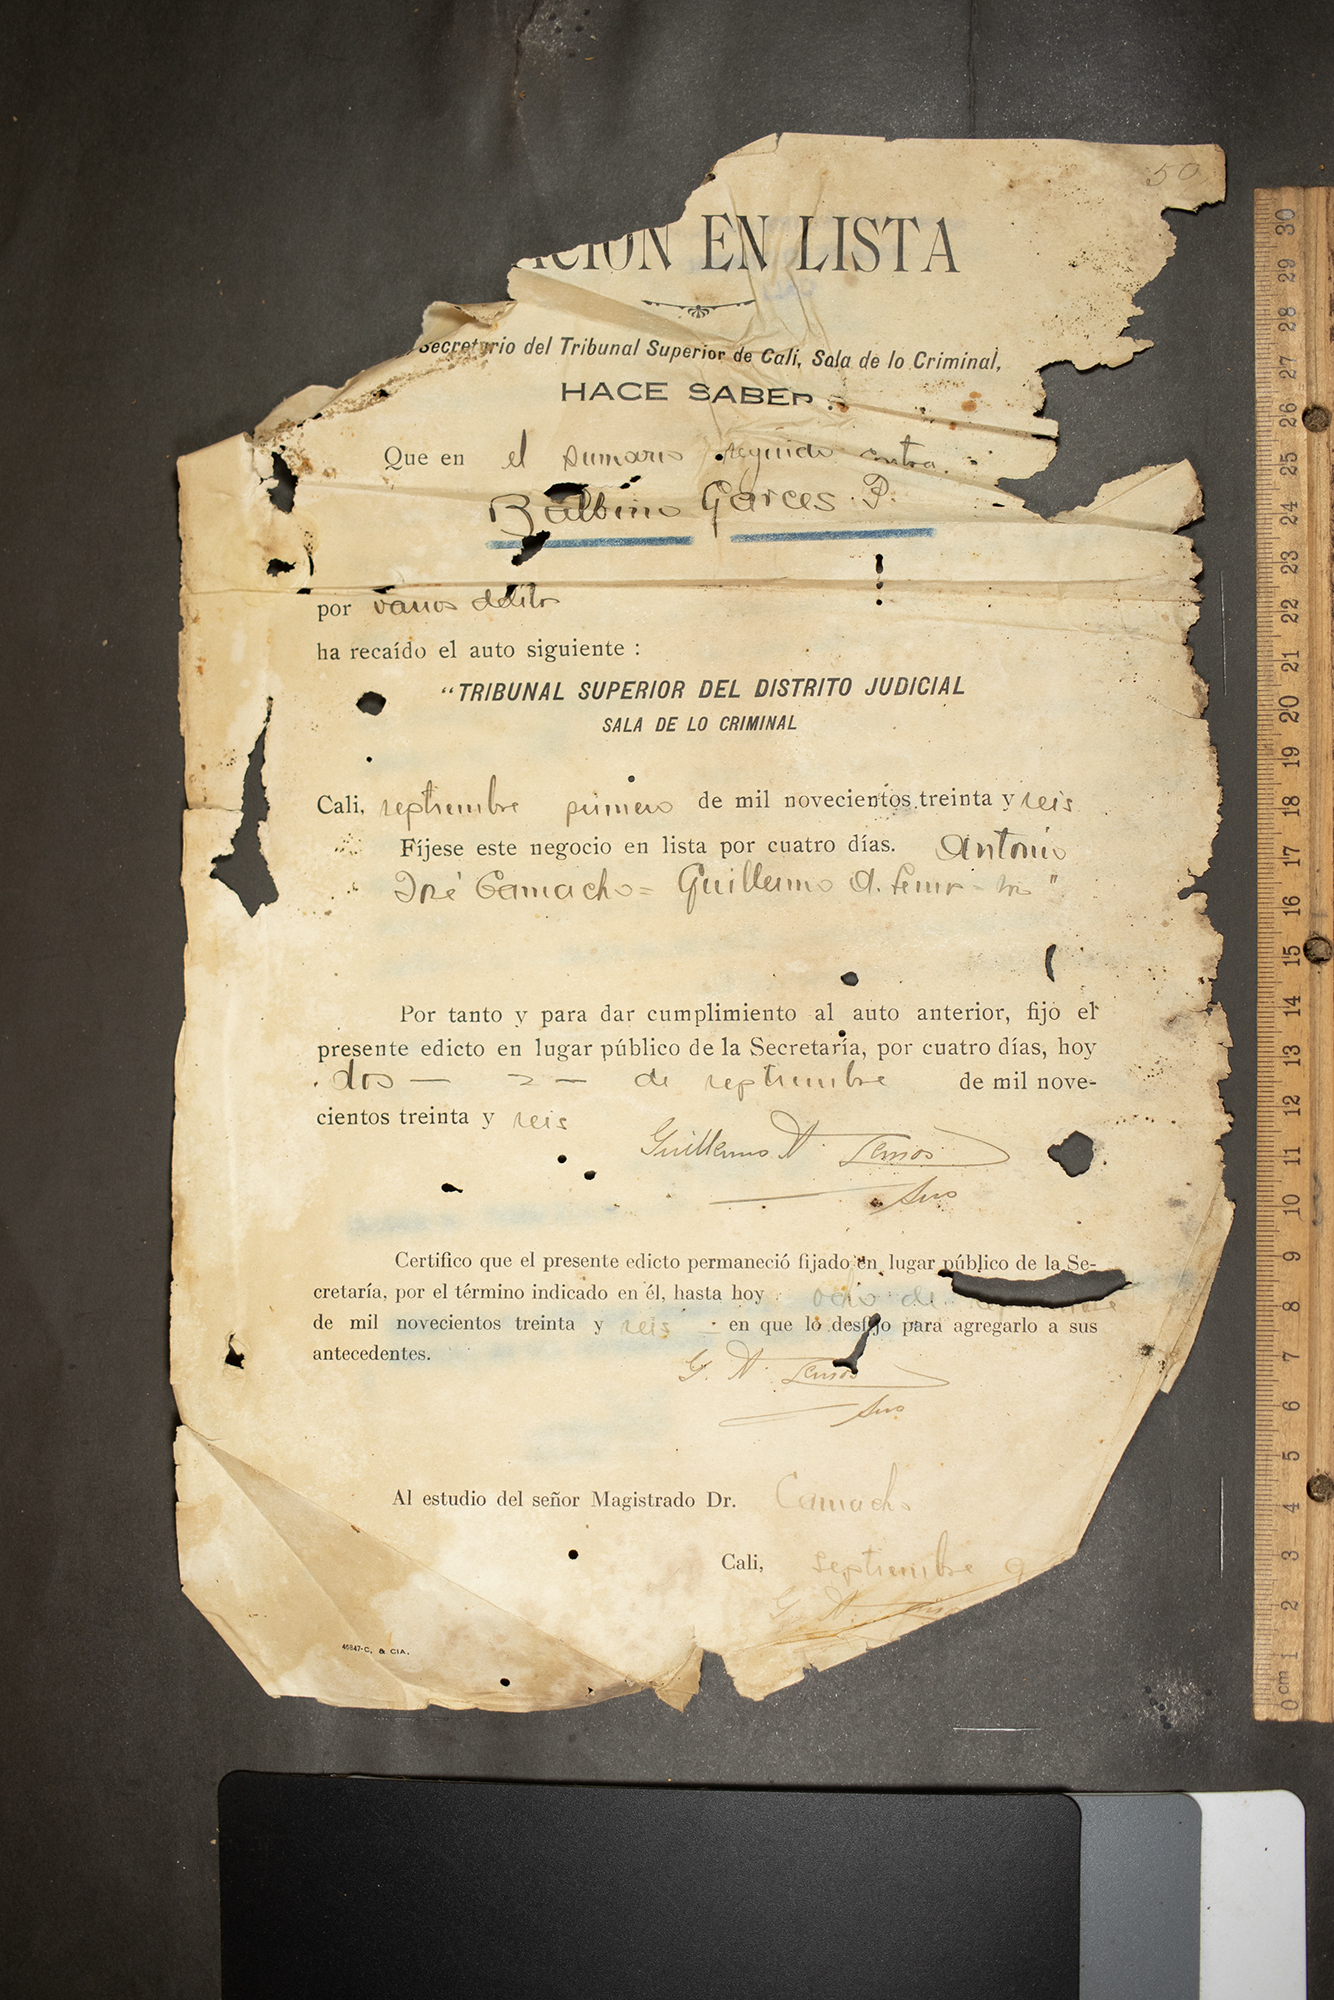 50
CIÓN EN LISTA
Secretario del Tribunal Superior de Cali, Sala de lo Criminal,
HACE SABER:
Que en el sumario seguido contra
Balbino Garces P.
por varios delitos
ha recaído el auto siguiente :
“TRIBUNAL SUPERIOR DEL DISTRITO JUDICIAL
SALA DE LO CRIMINAL
Cali, septiembre primero de mil novecientos treinta y seis
Fíjese este negocio en lista por cuatro días. Antonio
José Camacho = Guillermo A. Lemos - Srio "
Por tanto y para dar cumplimiento al auto anterior, fijo el
presente edicto en lugar público de la Secretaría, por cuatro días, hoy
dos — 2 — de septiembre de mil nove-
cientos treinta y seis
Guillermo A. Lemos
Srio
Certifico que el presente edicto permaneció fijado en lugar público de la Se-
cretaría, por el término indicado en él, hasta hoy ocho de septiembre
de mil novecientos treinta y seis - en que lo desfijo para agregarlo a sus
antecedentes.
G. A. Lemos
Srio
Al estudio del señor Magistrado Dr. Camacho
Cali, septiembre 9
G. A. Lemos
46847-C. & CIA.
0 cm 1 2 3 4 5 6 7 8 9 10 11 12 13 14 15 16 17 18 19 20 21 22 23 24 25 26 27 28 29 30